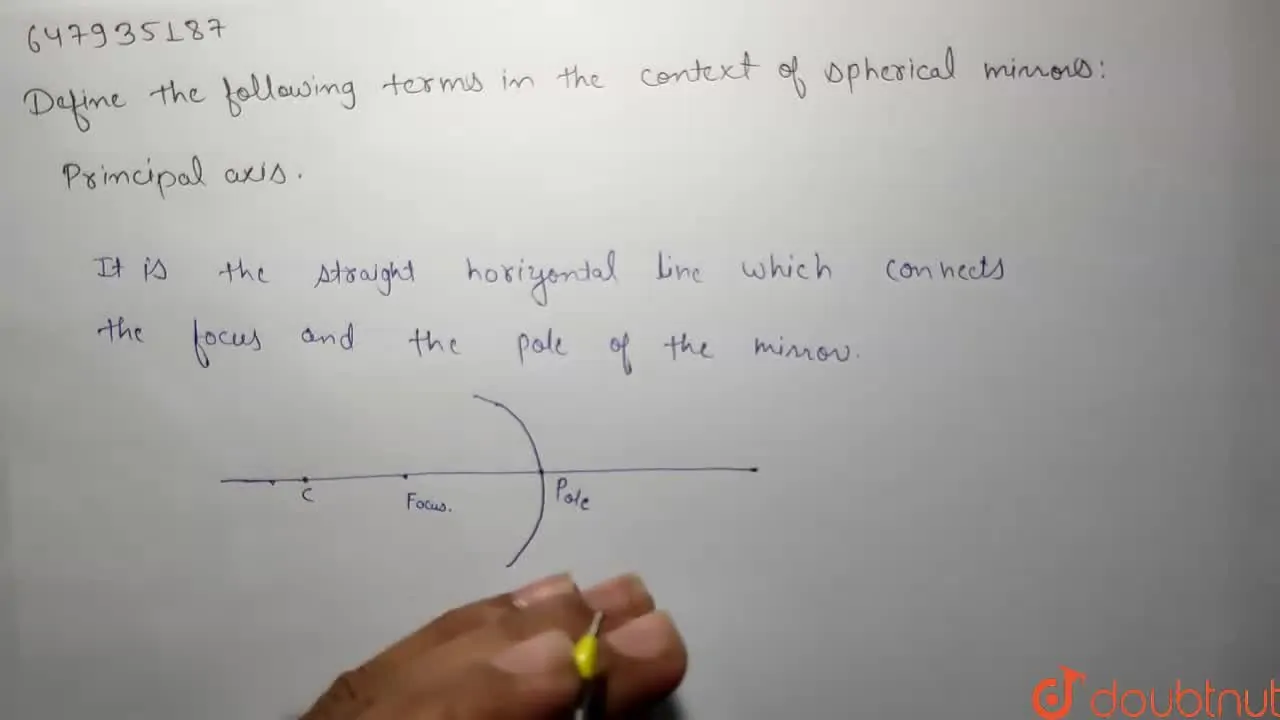 647935187
Define the following terms in the context of spherical mirrors:
Principal axis.
It is the straight horizontal line which connects
the focus and the pole of the mirror.
C
Focus.
Pole
doubtnut